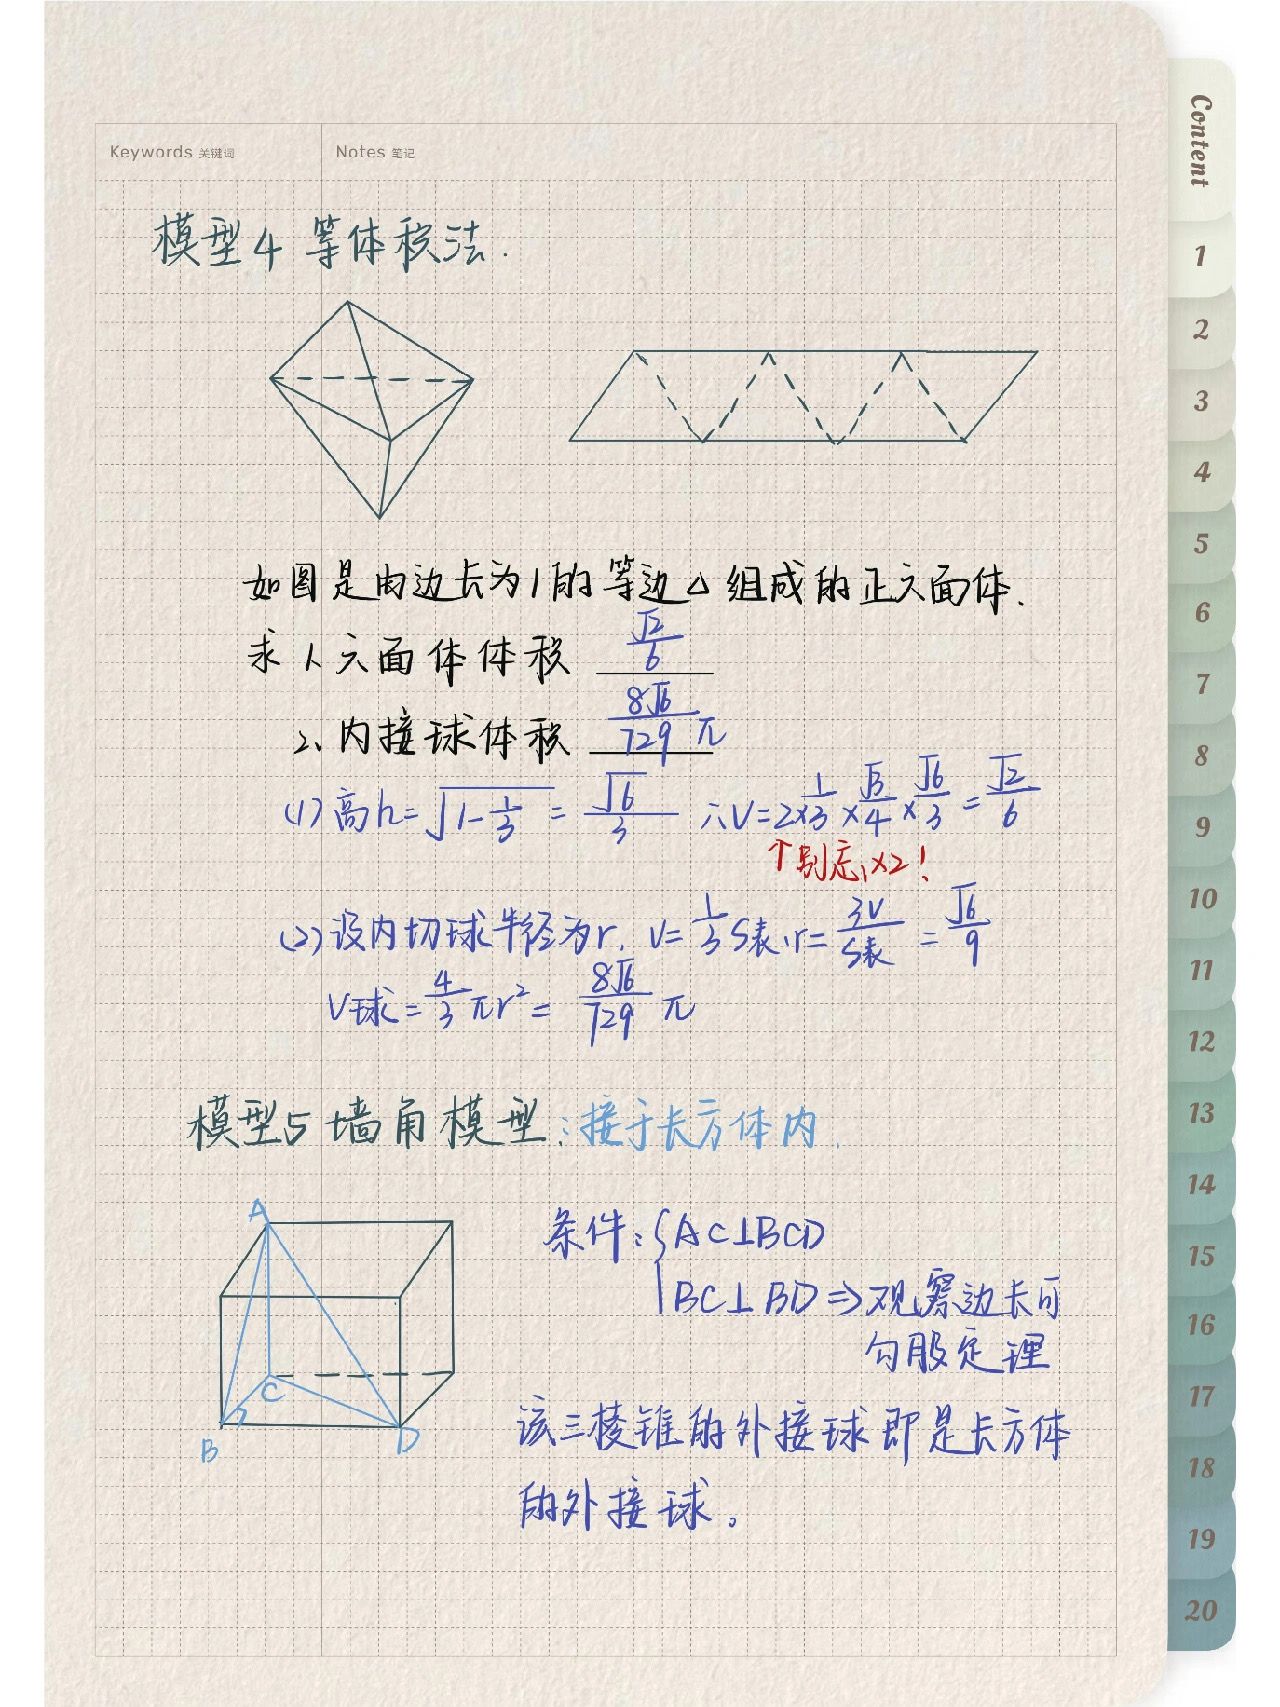 Keywords 关键词
Notes 笔记
模型4 等体积法.
如图是由边长为1的等边△组成的正六面体.
求 1、六面体体积 √2/6
2、内接球体积 8√6/729 π
(1) 高h=√(1-1/3) = √6/3 ∴V=2×1/3×√3/4×√6/3=√2/6
↑别忘×2!
(2) 设内切球半径为r. V=1/3 S表·r r=3V/S表 =√6/9
V球=4/3πr²=8√6/729 π
模型5 墙角模型:接于长方体内.
A
C
B
D
条件:{AC⊥BCD
BC⊥BD⇒观察边长可
勾股定理
该三棱锥的外接球即是长方体
的外接球。
Content
1
2
3
4
5
6
7
8
9
10
11
12
13
14
15
16
17
18
19
20